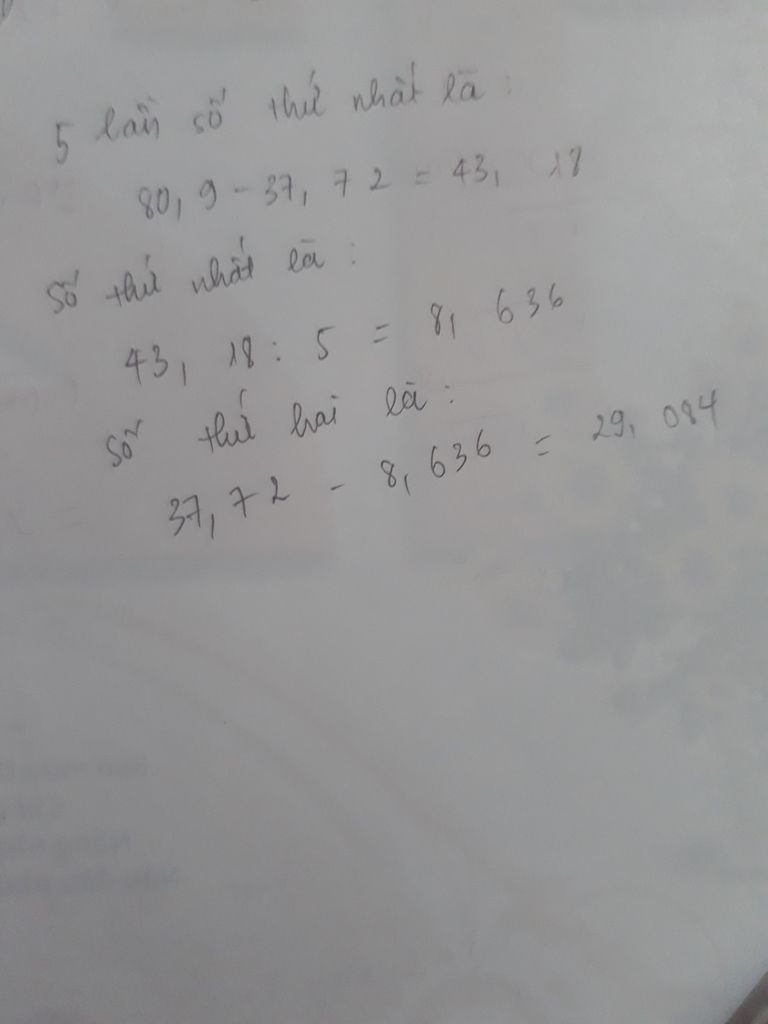 5 lần số thứ nhất là :
80,9 - 37,72 = 43,18
Số thứ nhất là :
43,18 : 5 = 8,636
Số thứ hai là :
37,72 - 8,636 = 29,084